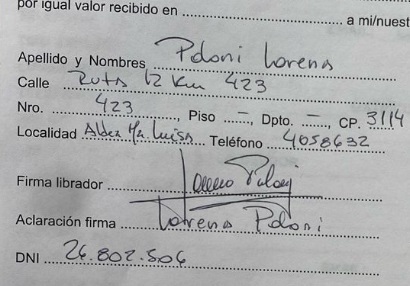 por igual valor recibido en ........ a mi/nuest
Apellido y Nombres Poloni Lorena
Calle Ruta 12 Km 423
Nro. 423, Piso -, Dpto. -, CP. 3114
Localidad Aldea Ma Luisa Teléfono 4058632
Firma librador
Aclaración firma Lorena Poloni
DNI 26.802.506